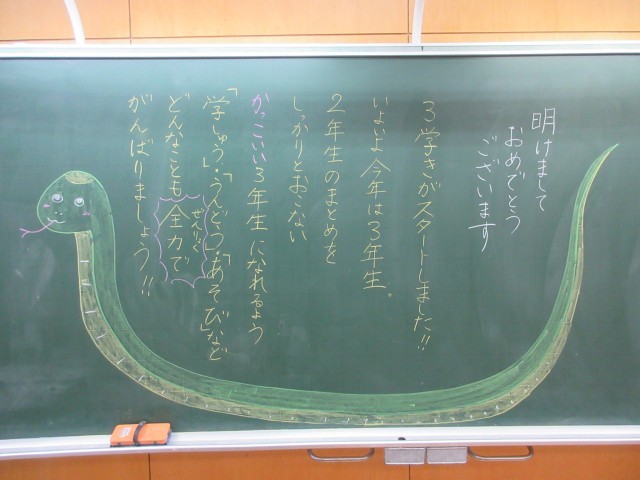 明けまして
おめでとう
ございます
3学きがスタートしました!!
いよいよ今年は3年生。
2年生のまとめを
しっかりとおこない
かっこいい3年生になれるよう
「学しゅう」・「うんどう」・「あそび」など
どんなことも全力で
ぜんりょく
がんばりましょう!!